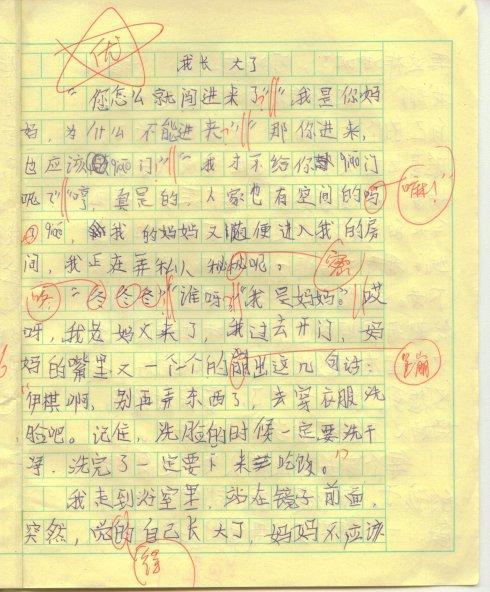 优
我长大了
"您怎么就闯进来了?""我是你妈
妈,为什么不能进来?""那你进来,
也应该qiao门!""我才不给你qiao门
呢!""哼,真是的,人家也有空间的吗
嘛!"
qiao,我的妈妈又随便进入我的房
间,我正在弄私人秘秘呢。
密
咚 "冬冬冬""谁呀?""我是妈妈。"哎
呀,我老妈又来了,我过去开门,妈
妈的嘴里又一个个的蹦出这几句话:
蹦
"伊棋啊,别再弄东西了,去穿衣服洗
脸吧。记住,洗脸的时候一定要洗干
净,洗完了一定要下来吃饭。"
我走到浴室里,站在镜子前面,
突然,觉的自己长大了,妈妈不应该
得